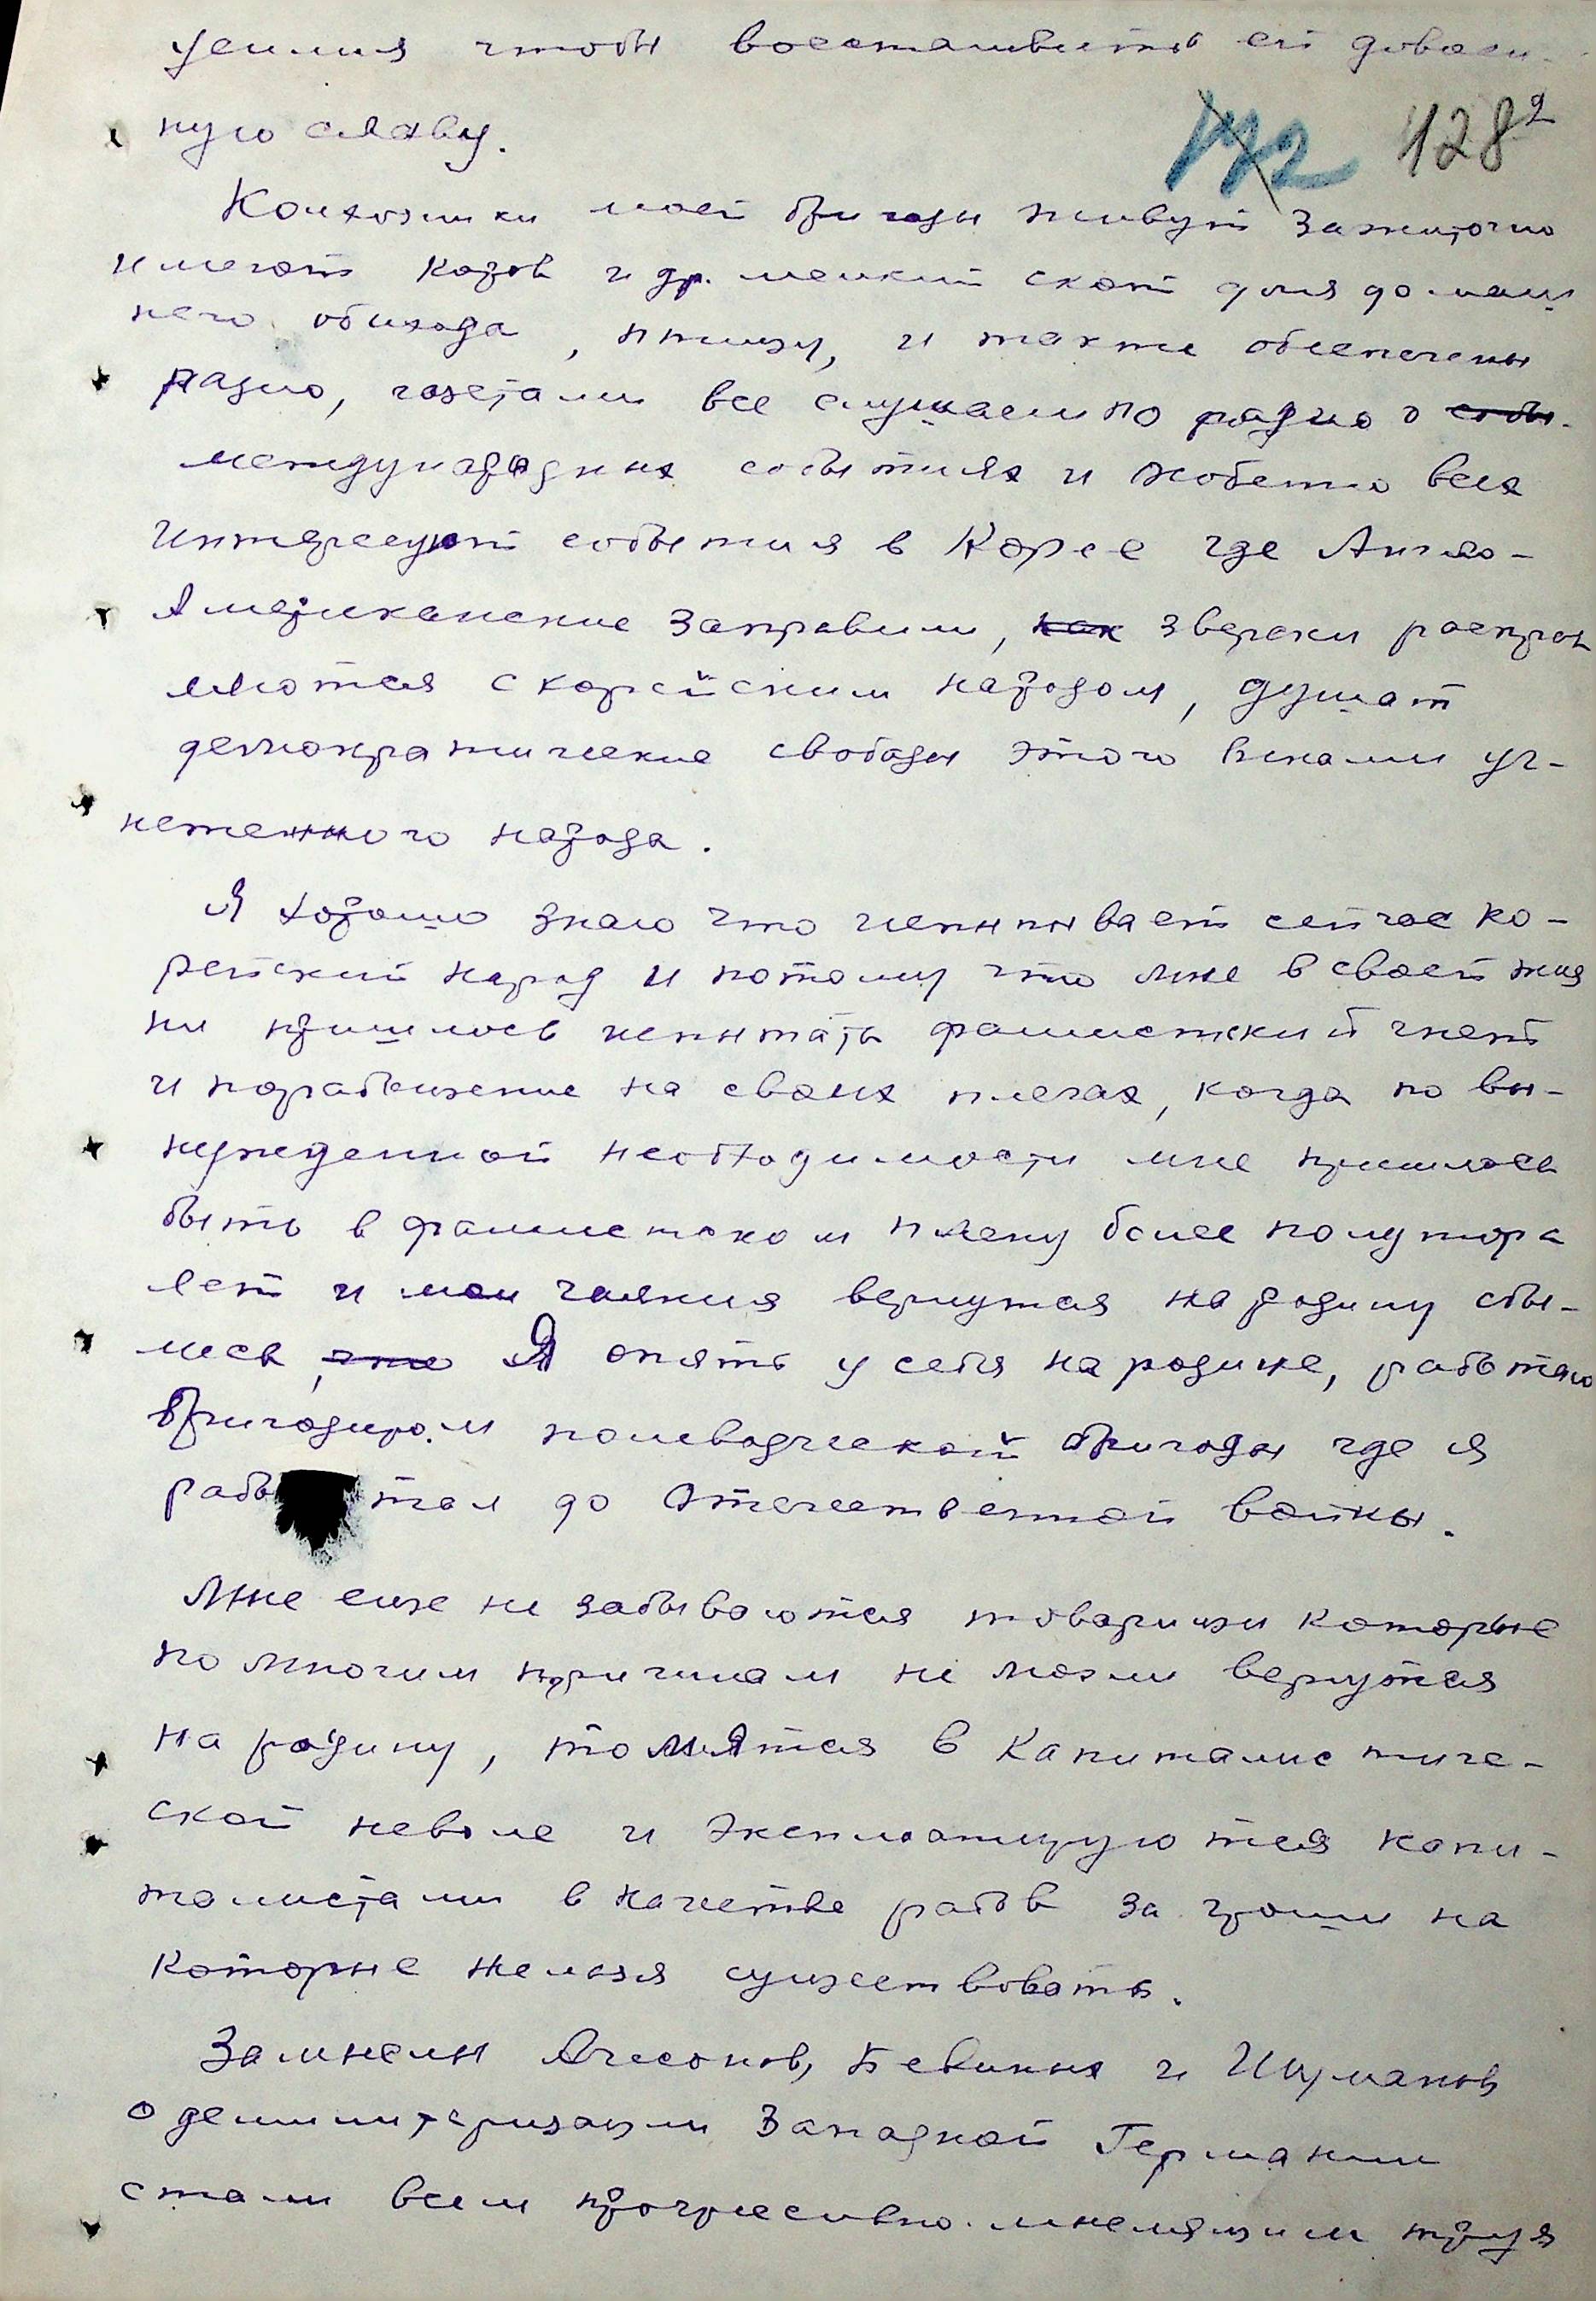 усилия чтобы восстановить ей довоен-
ную славу.
172 128 2
Колхозники моей бригады живут зажиточно
имеют козов и др. мелкий скот для домаш
него обихода, птицу, и также обеспечены
радио, газетами все слушаем по радио о собы-
международных событиях и особенно всех
интересуют события в Корее где Англо-
Американские заправилы, как зверски расправ
ляются с корейским народом, душат
демократические свободы этого веками уг-
нетенного народа.
Я хорошо знаю что испытывает сейчас ко-
рейский народ и потому что мне в своей жиз
ни пришлось испытать фашистский гнет
и порабощение на своих плечах, когда по вы-
нужденной необходимости мне пришлось
быть в фашистском плену более полутора
лет и мои чаяния вернутся на родину сбы-
лись, что Я опять у себя на родине, работаю
бригадиром полеводческой бригады где я
работал до Отечественной войны.
Мне еще не забываются товарищи которые
по многим причинам не могли вернутся
на родину, томятся в Капиталистиче-
ской неволе и эксплоатируются капи-
талистами в качестве рабов за гроши на
которые нельзя существовать.
Замыслы Ачесонов, Бевиных и Шуманов
о демилитаризации Западной Германии
стали всем прогресивно-мыслящим трудя